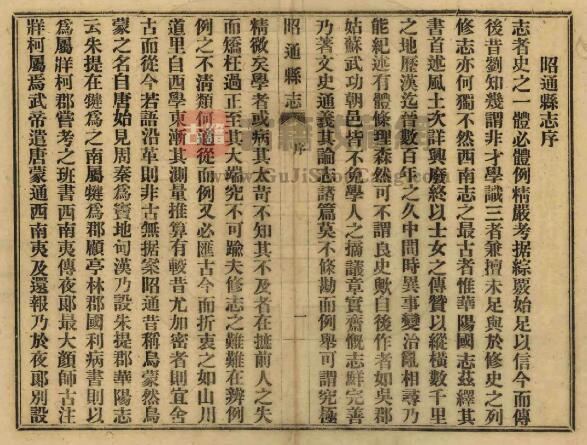 昭通縣志序
志者史之一體必體例精嚴考据綜覈始足以信今而傳
後昔劉知幾謂非才學識三者兼擅未足與於修史之列
修志亦何獨不然西南志之最古者惟華陽國志茲繹其
書首述風土次詳興廢終以士女之傳贊以縱橫數千里
之地歷漢迄晉數百年之久中間時異事變治亂相尋乃
能紀述有體條理森然可不謂良史歟自後作者如吳郡
姑蘇武功朝邑皆不免學人之摘議章實齋慨志鮮完善
乃著文史通義其論志諸篇莫不條勘而例舉可謂究極
昭通縣志 序 一
精微矣學者或病其太苛不知其不及者在摭前人之失
而矯枉過正至其大端究不可踰夫修志之難難在辨例
例之不清類何從而例又必匯古今而折衷之如山川
道里自西學東漸其測量推算有較昔尤加密者則宜舍
古而從今若語沿革則非古無据案昭通昔稱烏蒙然烏
蒙之名自唐始見周秦爲竇地甸漢乃設朱提郡華陽志
云朱提在犍爲之南屬犍爲郡顧亭林郡國利病書則以
爲屬牂柯郡嘗考之班書西南夷傳夜郞最大顏師古注
牂柯屬焉武帝遣唐蒙通西南夷及還報乃於夜郞別設
古籍
www.GuJiShuCang.com